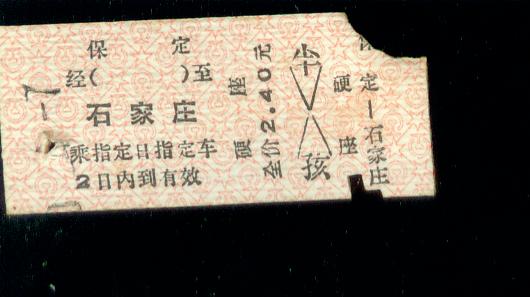 保定
经( )至
石家庄
乘指定日指定车
2日内到有效
硬座
全价2.40元
半
孩
保定—石家庄
硬座